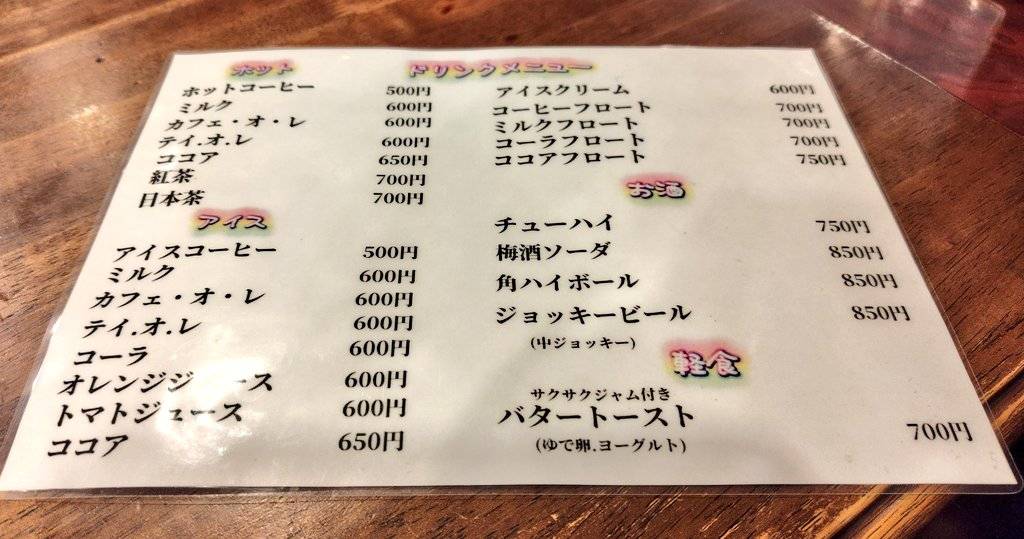 ドリンクメニュー
ホット
ホットコーヒー 500円
ミルク 600円
カフェ・オ・レ 600円
テイ.オ.レ 600円
ココア 650円
紅茶 700円
日本茶 700円
アイス
アイスコーヒー 500円
ミルク 600円
カフェ・オ・レ 600円
テイ.オ.レ 600円
コーラ 600円
オレンジジュース 600円
トマトジュース 600円
ココア 650円
アイスクリーム 600円
コーヒーフロート 700円
ミルクフロート 700円
コーラフロート 700円
ココアフロート 750円
お酒
チューハイ 750円
梅酒ソーダ 850円
角ハイボール 850円
ジョッキービール 850円
(中ジョッキー)
軽食
サクサクジャム付き
バタートースト 700円
(ゆで卵.ヨーグルト)